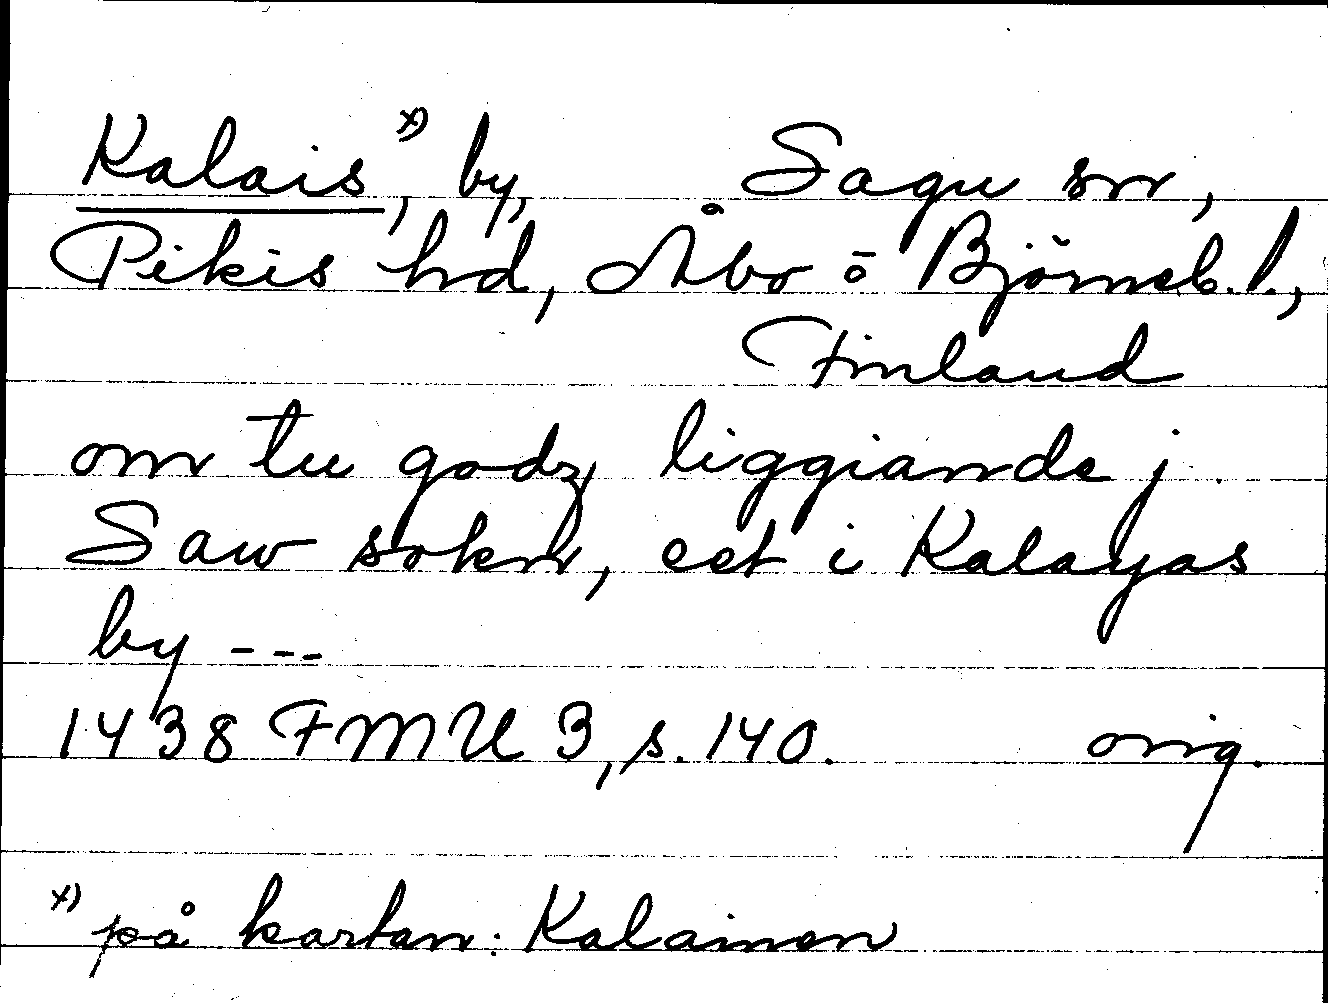 Kalais, x) by, Sagu sn,
Pikis hd, Åbo o Björneb. l.,
Finland
om tu godz liggiande j
Saw sokn, eet i Kalayas
by ---
1438 FMU 3, s. 140. orig.
x) på kartan: Kalainen